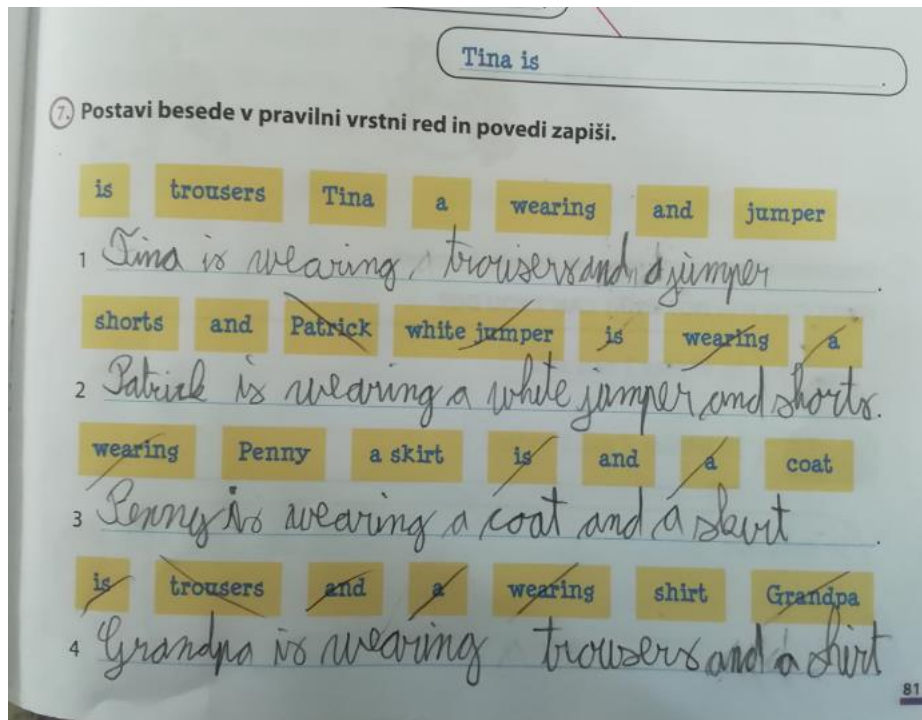 Tina is
.
7. Postavi besede v pravilni vrstni red in povedi zapiši.
is trousers Tina a wearing and jumper
1 Tina is wearing trousers and a jumper.
shorts and Patrick white jumper is wearing a
2 Patrick is wearing a white jumper and shorts.
wearing Penny a skirt is and a coat
3 Penny is wearing a coat and a skirt.
is trousers and a wearing shirt Grandpa
4 Grandpa is wearing trousers and a shirt
81